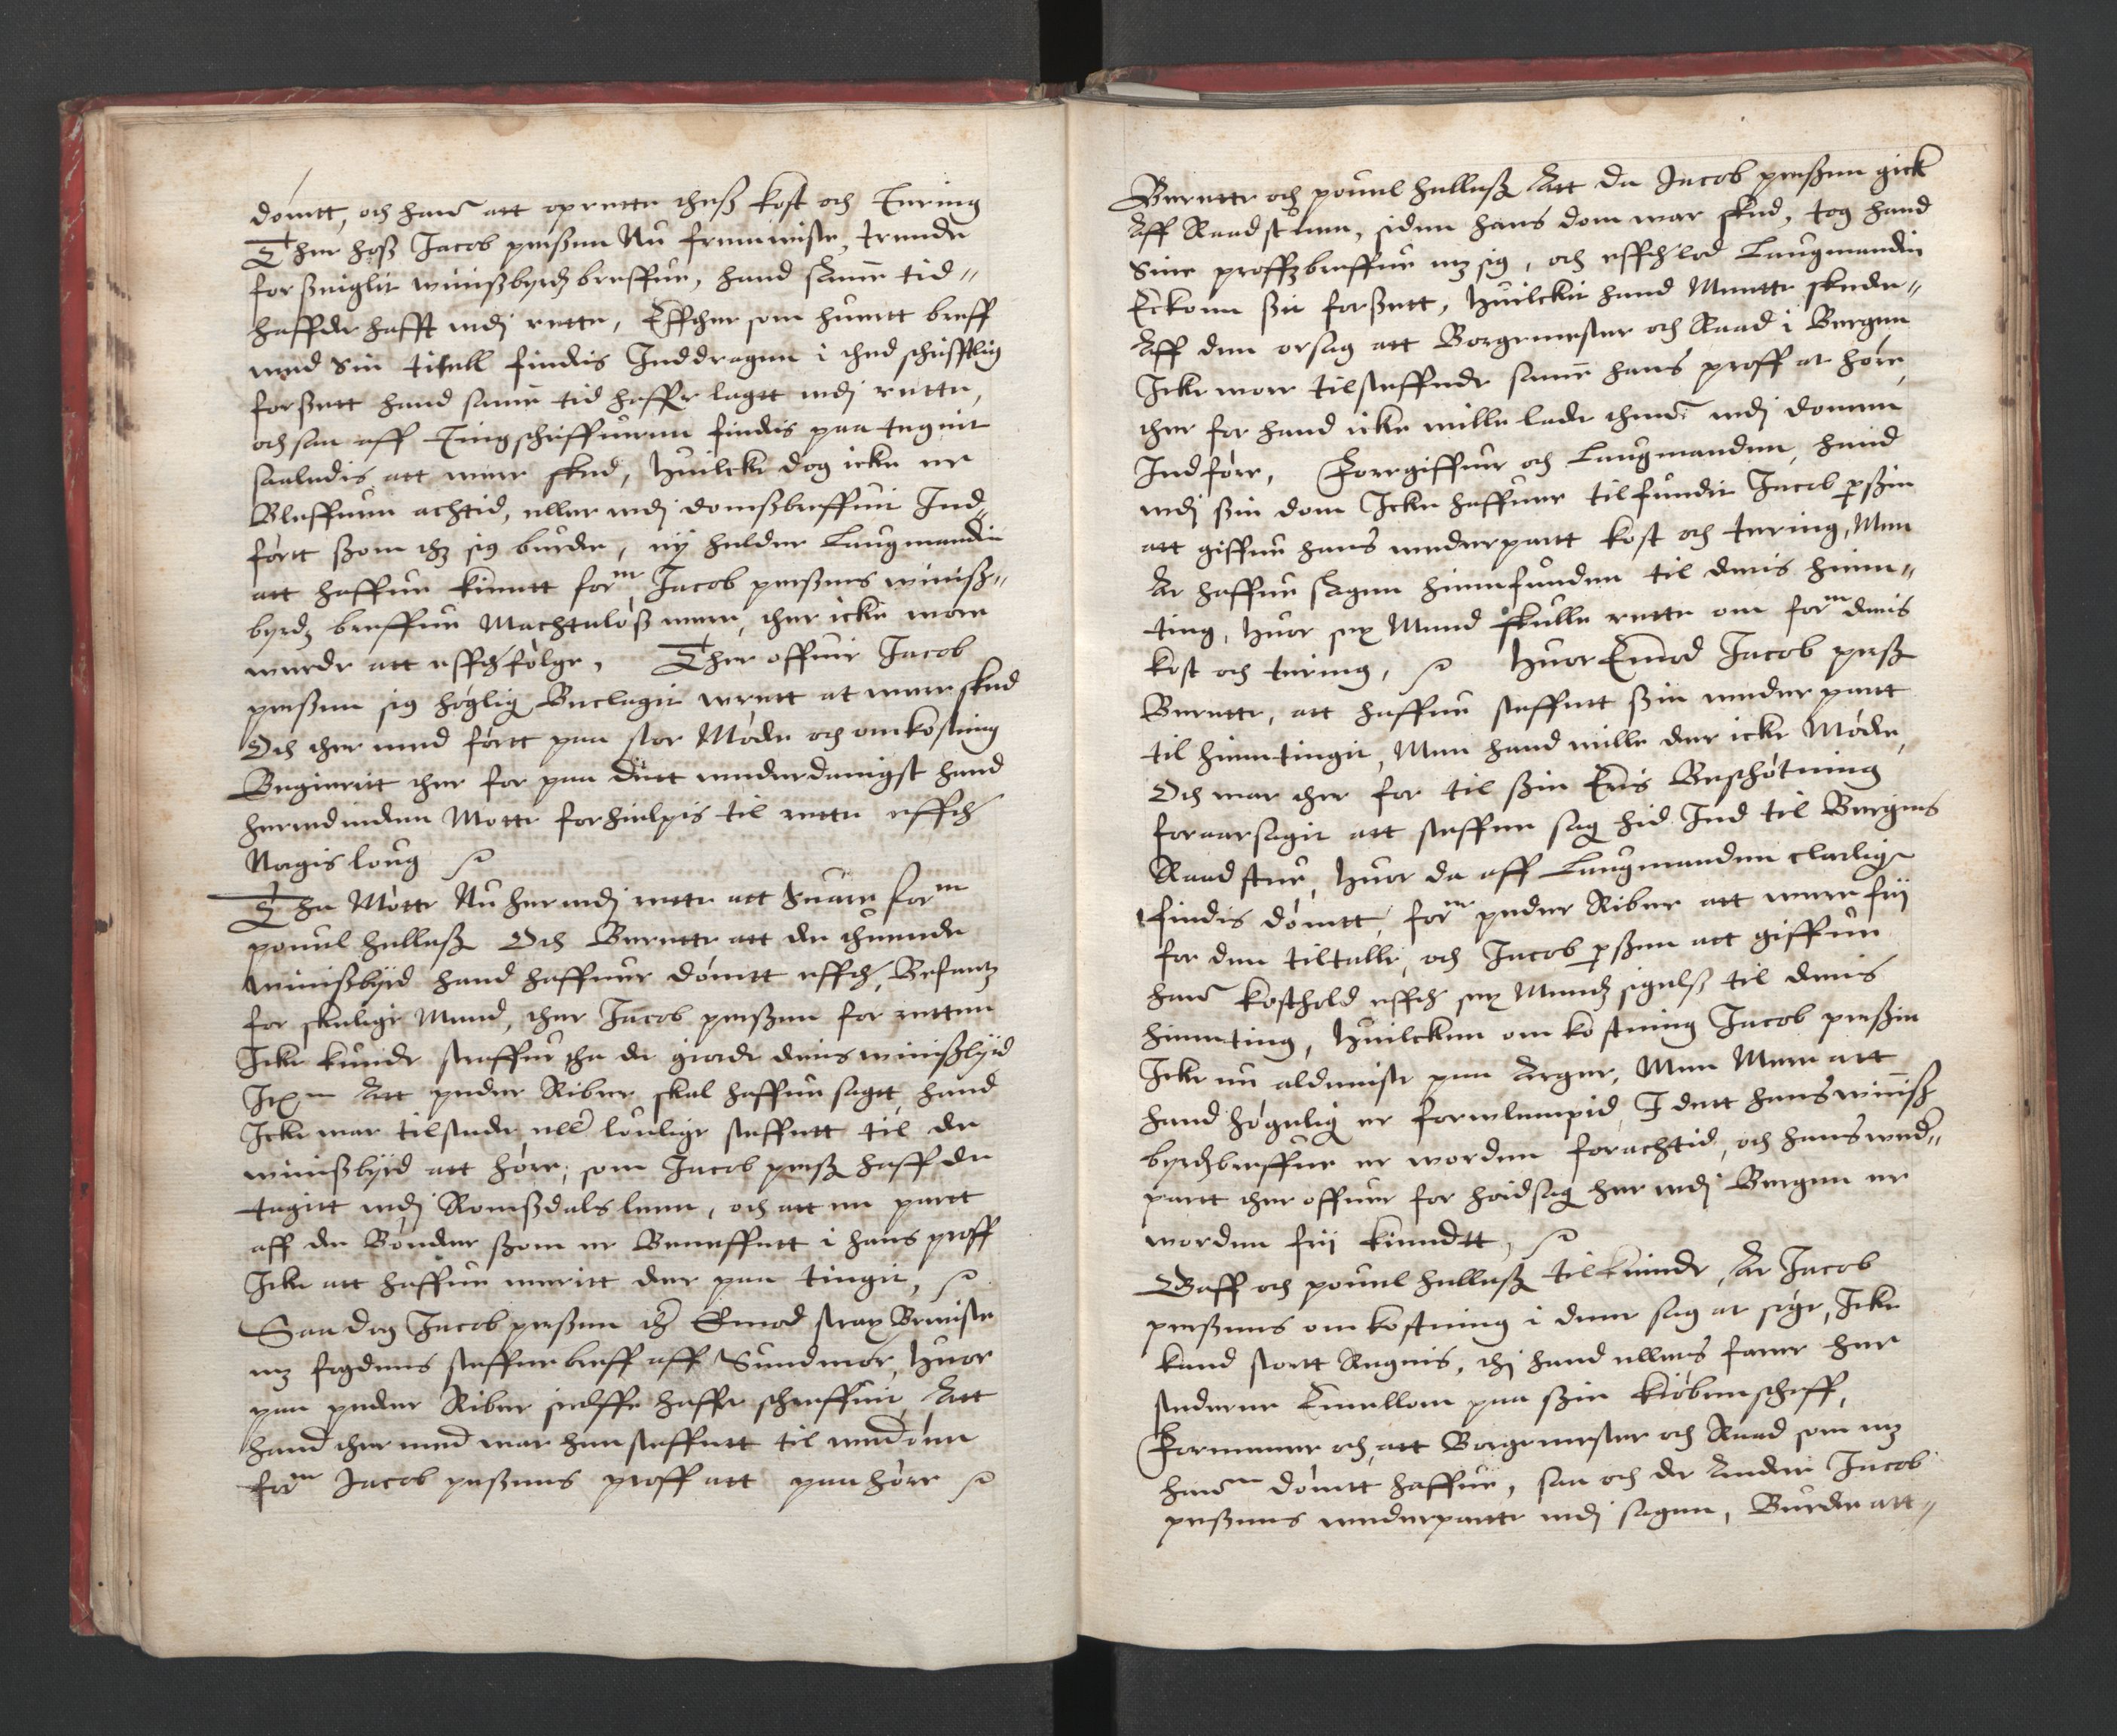 dömtt, och ham att oprette theß kost och Tering
Ther hoß Jacob perßen Nu fremuiste, trende
forßeiglit winißbyrdz breffue, hand samme tid
haffde hafft udj rette, Effther som huertt breff
med Sin titell findis Inddragen i thed schrifftlig
forßett hand samme tid haffr lagtt udj rette,
och saa aff Tingschriffueren findis paa tegnit
saaledis att were skeed, huilcke dog icke er
Bleffuen achtid, eller udj domßbreffuit Ind,,
förtt ßom thz sig burde, ey heller Laugmanden
att haffue kientt form Jacob perßens winiß,,
byrdz breffue Machteløß were, ther icke were
werde att effthfölge, Ther offuir Jacob
perßen sig höglig Beclagit wrett at were skeed
Och ther med förtt paa stor Möde och omkostning
Begierett ther for paa dett underdanigst hand
herudinden Motte forhielpis til rette effther
Norgis loug
Tha Mötte Nu her udj rette att suare form
pouuel helleß Och Berette att de thuende
winißbyrd hand haffuer dömtt effth, Befantz
for skielige Mend, ther Jacob perßen for retten
Icke kunde straffue tha de giorde deris winißbyrd
Item Att peder Riber skal haffue sagtt, hand
Icke war tilstede eller louligt steffnett til de
winißbyrd att höre, som Jacob perß haffde
tagitt udj Romßdals leen, och att en partt
aff de Bönder ßom er Beneffnett i hans proff
Icke att haffue weritt der paa tinget,
Saa dog Jacob perßen th Emod strax Beuiste
mz fogdens steffnebreff aff Sundmör, huor
paa peder Riber sielffr haffr schreffuit Att
hand ther med war hensteffnett til
form Jacob perßens proff att paahöre
Berette och pouuel helleß Att da Jacob perßen gick
Aff Raadstuen, siden hans dom war skeed, tog hand
Sine proffzbreffue mz sig, och effthlod Laugmanden
Eckonn ßit forßett, huilckit hand Mentte skede,,
Aff den orsag att Borgemester och Raad i Bergen
Icke wore tilsteffnede samme hans proff at höre,
ther for hand icke wille lade thenom udj dommen
Indföre, Foregiffuer och Laugmanden, hand
udj ßin dom Icke haffuer tilfundit Jacob perßen
att giffue hans wederpartt kost och tering, Men
At haffue sagen hiemfunden til deris hiem,,
ting, huor sex Mend skulle rette om form deris
kost och tering, Huor Emod Jacob perß
Berette, att haffue steffnett ßin wederpartt
til hiemtinget, Men hand wille der icke Möde,
Och war ther for til ßin Eris Beschötning
foraarsagit att steffne sag hid Ind til Bergens
Raadstue, huor da aff Laugmanden clarlig
findis dömtt, form peder Riber att were frij
for den tiltalle, och Jacob perßen att giffue
ham kosthold effth sex Mendz sigelß til deris
hiemting, huilcken omkostning Jacob perßen
Icke en aldeniste paa Arger, Men Mere att
hand högelig er forwlempid, I dett hans winiß
byrdzbreffue er worden forachtid, och hans weder,,
partt ther offuer for hoidsag her udj Bergen er
worden frij kiendtt,
Gaff och pouuel helleß tilkiende, At Jacob
perßens omkostning i denne sag at söge, Icke
kand stortt Regnis, thj hand ellers farer her
stederne Emellom paa ßin kiöbenschaff,
Formener och att Borgemester och Raad som mz
hamm dömtt haffue, saa och de Andere Jacob
perßens wederpartte udj sagen, Burde att,,